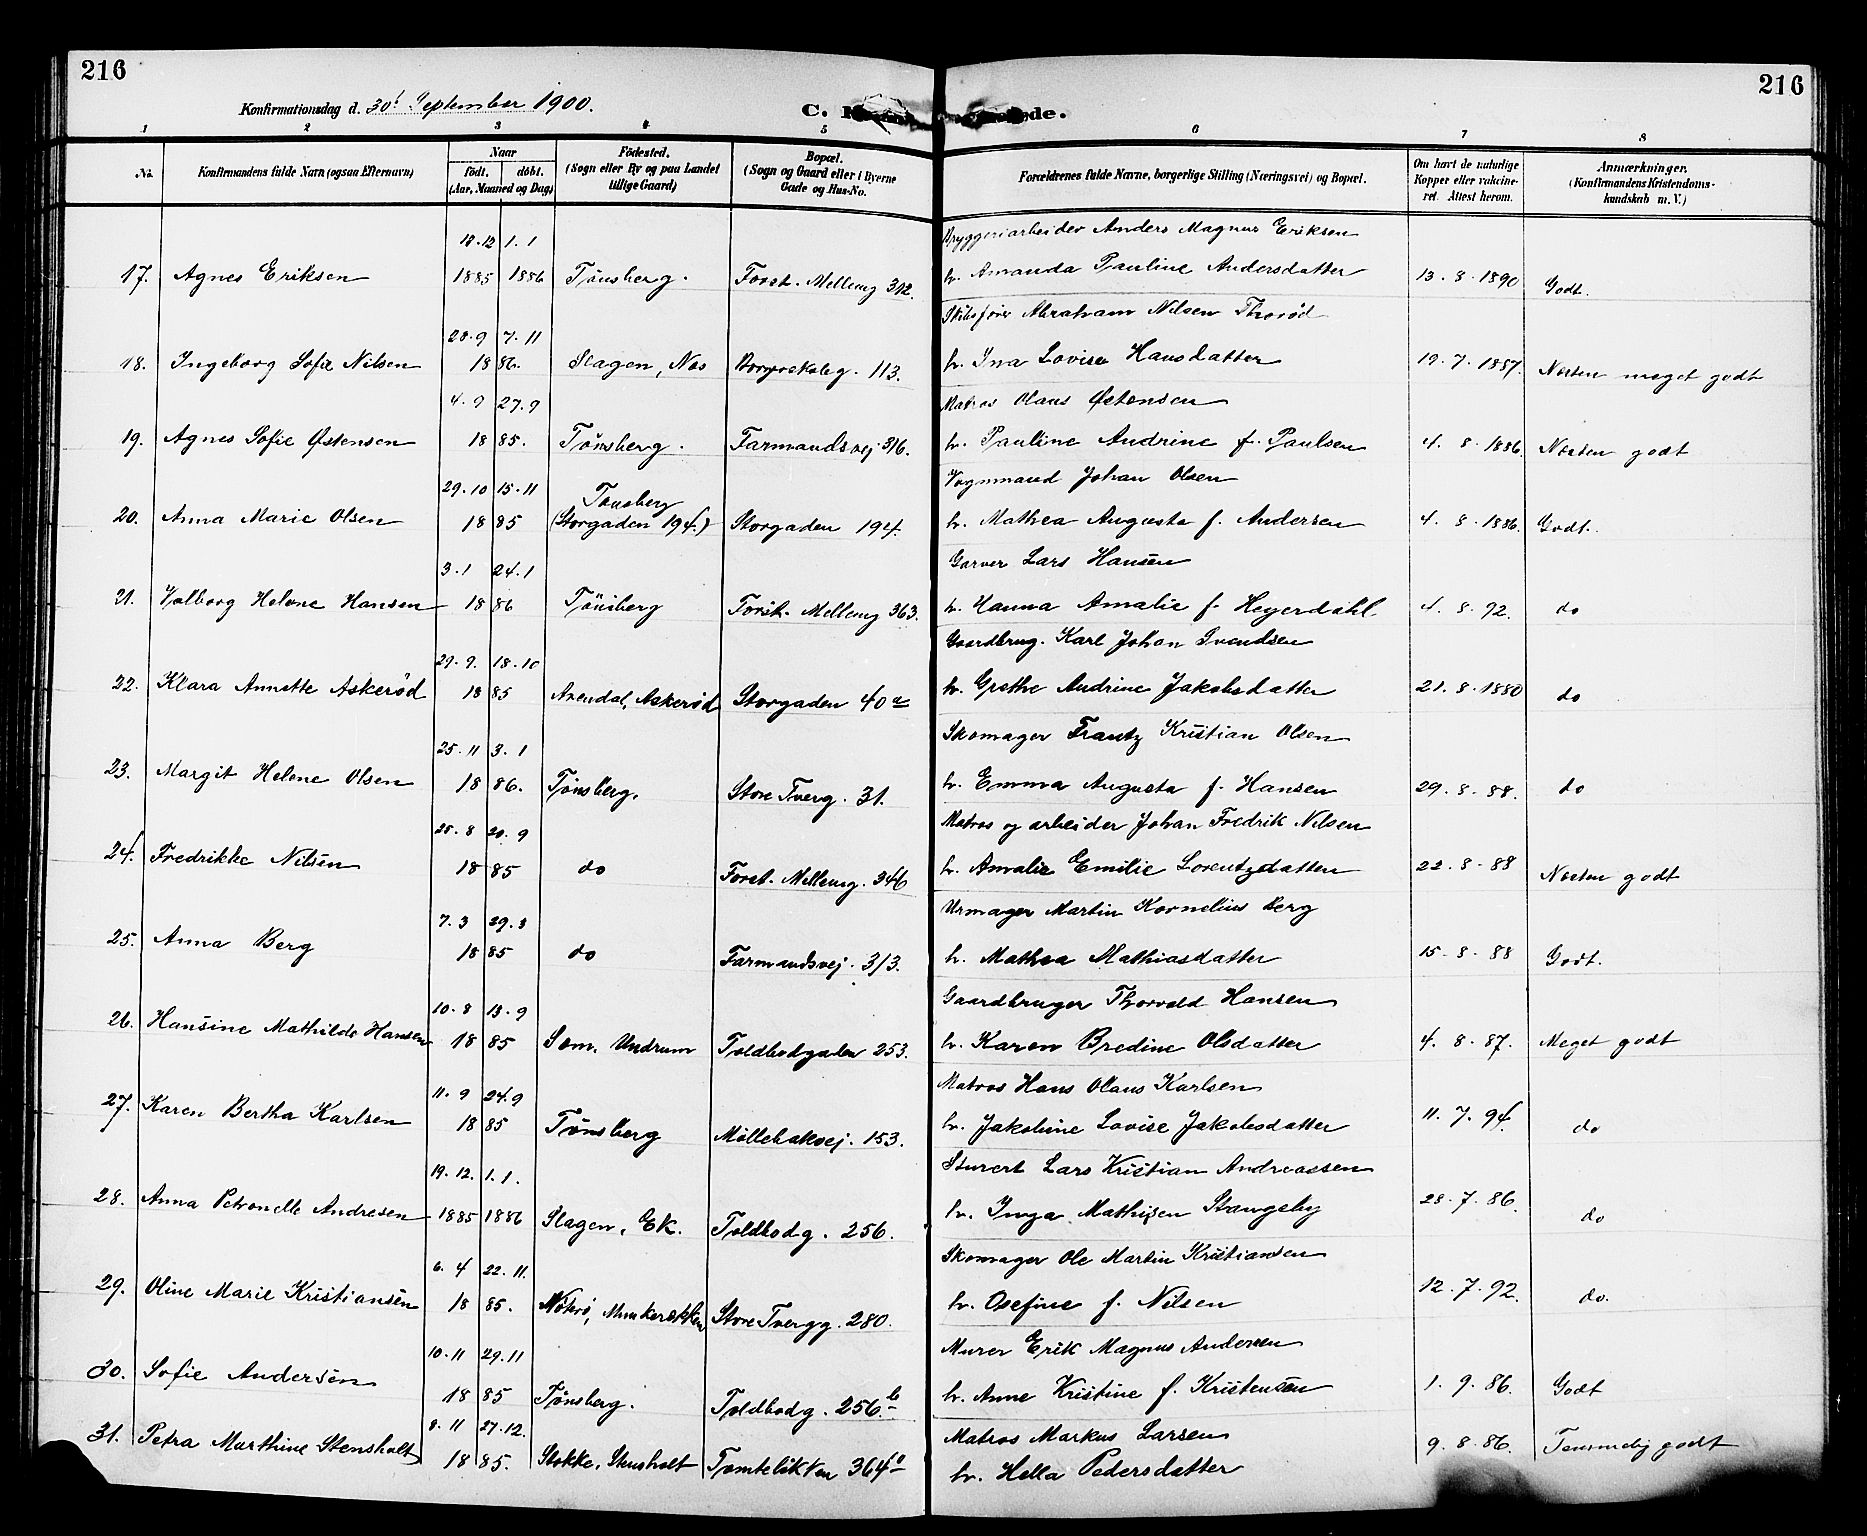 216
216
Konfirmationsdag d. 30t September 1900.
C. de.
1 2 3 4 5 6 7 8
No.
Konfirmandens fulde Navn (ogsaa Efternavn)
Naar
født. døbt.
(Aar, Maaned og Dag)
Fødested.
(Sogn eller By og paa Landet
tillige Gaard)
Bopæl.
(Sogn og Gaard eller i Byerne
Gade og Hus-No.
Forældrenes fulde Navne, borgerlige Stilling (Næringsvei) og Bopæl.
Om havt de naturlige
Kopper eller vakcine-
ret. Attest herom.
Anmærkninger.
(Konfirmandens Kristendoms-
kundskab m. V.)
18.12 1.1 Bryggeriarbeider Anders Magnus Eriksen
17. Agnes Eriksen 1885 1886 Tønsberg. Forst. Melleng 312. h. Amanda Pauline Andersdatter 13.8.1890 Godt.
28.9 7.11 Skibsfører Abraham Nilsen Thorød
18. Ingeborg Sofie Nilsen 18 86. Slagen, Nes 113. h. Ina Lovise Hansdatter 19.7.1887. Næsten meget godt
4.9 27.9 Matros Olaus Østensen
19. Agnes Sofie Østensen 18 85. Tønsberg. Farmandsvej 316. h. Pauline Andrine f. Paulsen 4.8.1886. Næsten godt
29.10 15.11 Tønsberg Vognmand Johan Olsen
20. Anna Marie Olsen 18 85 (Storgaden 194.) Storgaden 194. h. Mathea Augusta f. Andersen 4.8.1886. Godt.
3.1 24.1 Garver Lars Hansen
21. Valborg Helene Hansen 18 86 Tønsberg Forst. Melleng 363. h. Hanna Amalie f. Heyerdahl 4.8.92. do
29.9. 18.10 Gaardbrug. Karl Johan Svendsen
22. Klara Annette Askerød 18 85 Arendal, Askerød Storgaden 40 a h. Grethe Andrine Jakobsdatter 21.8.1880 do
25.11 3.1 Skomager Frantz Kristian Olsen
23. Margit Helene Olsen 18 86. Tønsberg. Store Tverg. 31. h. Emma Augusta f. Hansen 29.8.88. do
25.8 20.9 Matros og arbeider Johan Fredrik Nilsen
24. Fredrikke Nilsen 18 85 do Forst. Melleng. 346 h. Amalie Emilie Lorentzdatter 22.8.88 Næsten godt
7.3 29.3 Urmager Martin Kornelius Berg
25. Anna Berg 18 85 do Farmandsvej. 313. h. Mathea Mathiasdatter 15.8.88 Godt.
10.8 13.9 Gaardbruger Thorvald Hansen
26. Hansine Mathilde Hansen 18 85 Sem, Undrum Toldbodgaden 253. h. Karen Bredine Olsdatter 4.8.87. Meget godt
11.9 24.9 Matros Hans Olaus Karlsen
27. Karen Bertha Karlsen 18 85 Tønsberg Møllebakvej. 153. h. Jakobine Lovise Jakobsdatter 11.7.94. do
19.12. 1.1. Stuert Lars Kristian Andreassen
28. Anna Petronelle Andresen 1885 1886 Slagen, Ek. Toldbodg. 256. h. Inga Mathisen Stangeby 28.7.86. do
6.4 22.11. Skomager Ole Martin Kristiansen
29. Oline Marie Kristiansen 18 85. Nøtterø, Munkerekken Store Tvergg. 280. h. Osefine f. Nilsen 12.7.92. do.
10.11 29.11 Murer Erik Magnus Andersen
30. Sofie Andersen 18 85 Tønsberg. Toldbodg. 256.b h. Anne Kristine f. Kristensen 1.9.86. Godt
8.11 27.12. Matros Markus Larsen
31. Petra Marthine Stensholt 18 85. Stokke, Stensholt Tomteløkken 364 h. Hella Pedersdatter 9.8.86. Temmelig godt